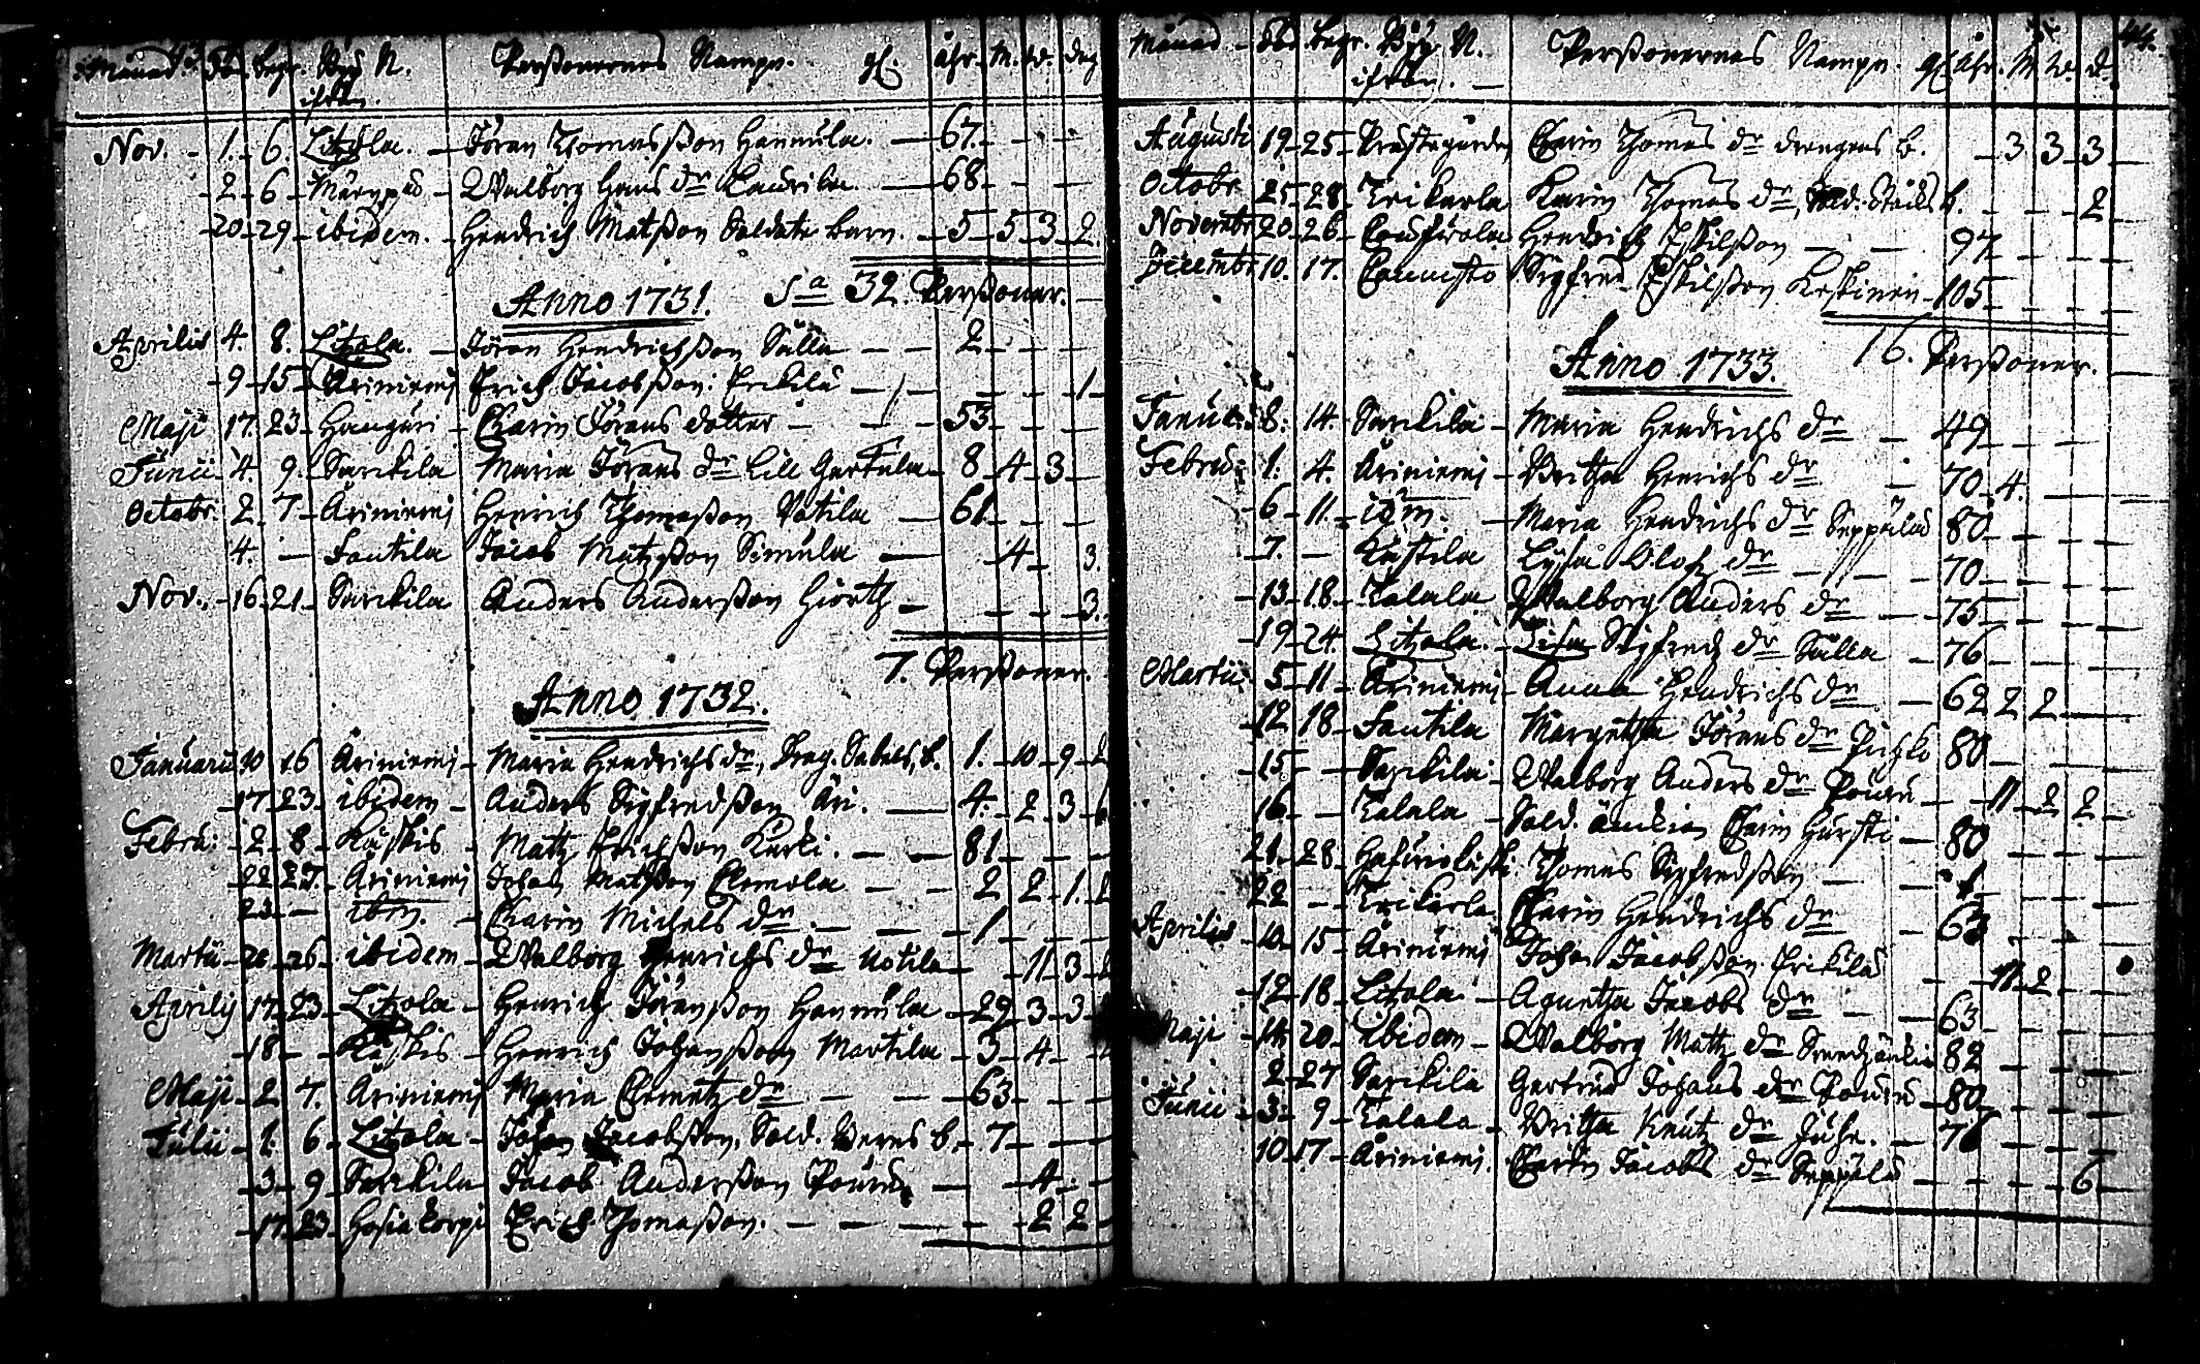 43.
Månad. Död. Begr. Byss N. Perßonernes Nampn. gl. åhr. M. w. dag
ifrån.
Nov. - 1. - 6. Litzola. - Jöran Thomasßon Hannula. - 67. - - -
- 2 - 6 - - Walborg Hans dr Laurila. - 68 - - -
- 20 - 29 - ibidem. - Hendrich Matsßon Soldate barn. - 5 - 5 - 3 - 2.
Sa 32. Perßoner.
Anno 1731.
Aprilis 4. 8. Litzola. - Jöran Hendrichsßon Sälla - - 2 - - -
- 9 - 15 - Äriniemj Erich Jacobsßon Erkilä - - - - - 1 -
Maji 17. 23 - Hauguri - Carin Jörans dotter - - - 53 - - -
Junii - 4. 9. - Sarkila Maria Jörans dr Lill Gartula - 8 - 4 - 3 -
Octobr. 2 - 7 - Äriniemj Henrich Thomasßon Votila - 61 - - -
4. - Fantila Jacob Matzßon Simula - - 4 - 3.
Nov. - 16 - 21 - Sarkila Anders Andersßon Hiorth - - - - 3.
7. Perßoner.
Anno 1732.
Januarii 10 16 Äriniemj - Maria Hendrichs dr, b. 1. - 10 - 9 - 2
- 17 - 23 - ibidem - Anders Sigfredsßon Äri. - 4. - 2 - 3 - 6
Febru: - 2 - 8 - Käskis - Matz Erichsßon Kurki. - - 81 - - -
- 22 27. - Äriniemj Johan Matsßon Clemola - - 2 2 - 1. 2
23 - - ibm. - Carin Michels dr - - - 1 - - -
Martii - 20 - 26 - ibidem - Walborg Henrichs dr Uotila - - 11 - 3 -
Aprilis 17. - 23 - Litzola - Henrich Jöransßon Hannula - 29 - 3 - 3 -
- 18 - - Käskis - Henrich Johansßon Martila - 3 - 4 - -
Maji - 2 7. Äriniemj Maria Clemetz dr - - 63 - - -
Julii - 1. 6 - Litzola - Johan Jacobsßon, Sold. b. - 7 - - -
- 3 - 9 - Sarkila - Jacob Andersßon Pouru - - 4 - -
- 17 - 23 - Hosiakorpi Erich Thomasßon. - - - - 2 2 -
44.
Månad - Död. Begr. Byss N. Perßonernes Nampn. gl. åhr. M w. d.
ifrån. -
Augusti 19 - 25 - Prästegården Carin Thomas dr drengens b. - 3 3 - 3 -
Octobr. 25 - 28 - Erikarla Karin Thomas dr, Sold. b. - - - 2 -
Novembr 20 - 26 - Hendrich Eskilsßon - - 97 - - -
Decembr 10. 17. Sigfred Eskilsßon Keskinen - 105 - - -
16. Perßoner.
Anno 1733.
Januarii 8. 14. Sarkila - Maria Hendrichs dr - 49 - - -
Febru: - 1. 4. Äriniemj - Britha Henrichs dr - 70 - 4. -
- 6 - 11. - idm. - Maria Hendrichs dr Seppälä 80 - - -
- 7. - Kustila Lysa Olofz dr - - - 70 - - -
- 13 - 18 - Talala Walborg Anders dr - 75 - - -
- 19 - 24. Litzola. - Lisa Sigfredz dr Sälla - 76 - - -
Martii - 5 - 11 - Äriniemj - Anna Hendrichs dr - 62 2 2 -
- 12 18 - Fantila Margetha Jörans dr 80 - - -
- 15 - - Sarkila - Walborg Anders dr Pouru - - 11 - 2 2 -
16 - - Talala - Sold. änkian Carin Hurski - 80 - - -
21 - 28 - Thomas Sigfredsßon - - 1 - - -
22 - - Erikarla. Carin Hendrichs dr - 63 - - -
Aprilis - 10 - 15 - Äriniemj Johan Jacobsßon Erkilä - - 11 - 2 -
- 12 - 18 - Litzola - Agnetha Jacobs dr - - 63 - - -
Maji - 14 20 - ibidem - Walborg Mattz dr 82 - - -
2 - 27 Sarkila Gertrud Johans dr Pouru - 80 - - -
Junii - 3 - 9 - Talala - Britha Knutz dr - 78 - - -
10 - 17 - Äriniemj. Carin Jacobs dr Seppälä - - - - 6 -